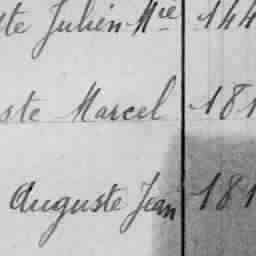 ste Julien-Mie 144
ste Marcel 181
Auguste Jean 181